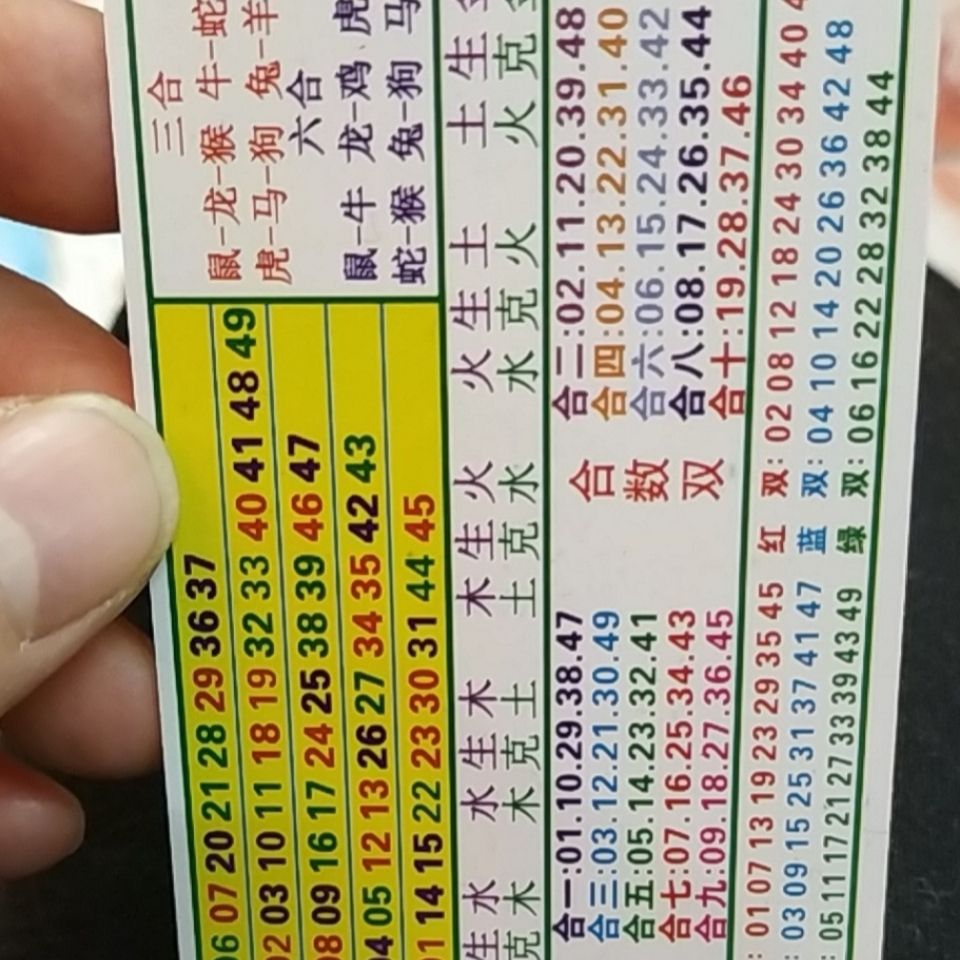 三合
鼠-龙-猴 牛-蛇
虎-马-狗 兔-羊
六合
鼠-牛 龙-鸡 虎
蛇-猴 兔-狗 马
06 07 20 21 28 29 36 37
02 03 10 11 18 19 32 33 40 41 48 49
08 09 16 17 24 25 38 39 46 47
04 05 12 13 26 27 34 35 42 43
01 14 15 22 23 30 31 44 45
生水 水生木 木生火 火生土 土生
克木 木克土 土克水 水克火 火克
合一:01.10.29.38.47
合三:03.12.21.30.49
合五:05.14.23.32.41
合七:07.16.25.34.43
合九:09.18.27.36.45
合数双
合二:02.11.20.39.48
合四:04.13.22.31.40
合六:06.15.24.33.42
合八:08.17.26.35.44
合十:19.28.37.46
: 01 07 13 19 23 29 35 45 红双: 02 08 12 18 24 30 34 40
: 03 09 15 25 31 37 41 47 蓝双: 04 10 14 20 26 36 42 48
: 05 11 17 21 27 33 39 43 49 绿双: 06 16 22 28 32 38 44